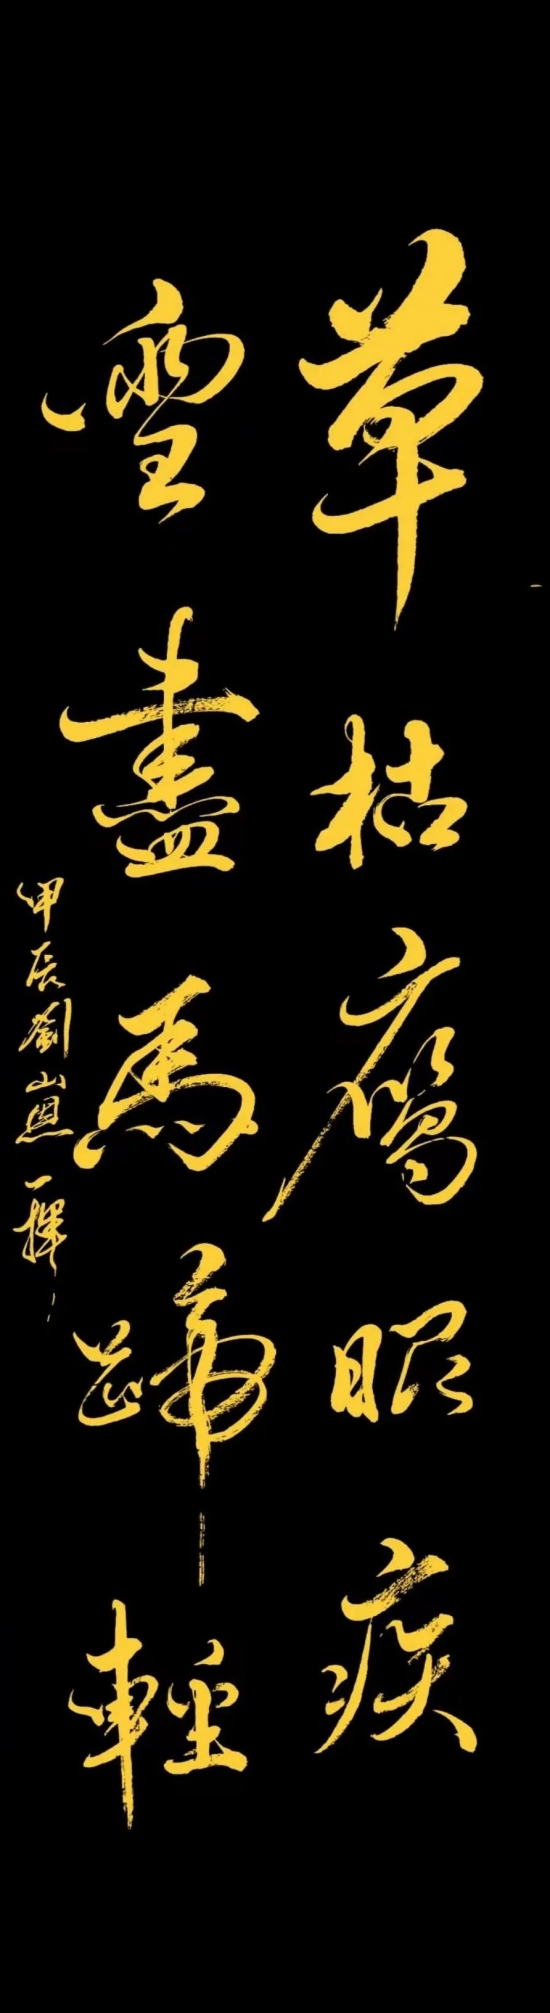 草枯鹰眼疾
雪盡馬蹄輕
甲辰劉山恩一揮